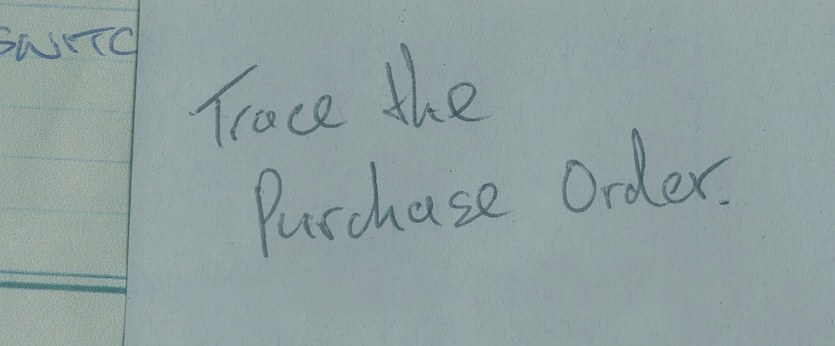 Trace the
Purchase Order.